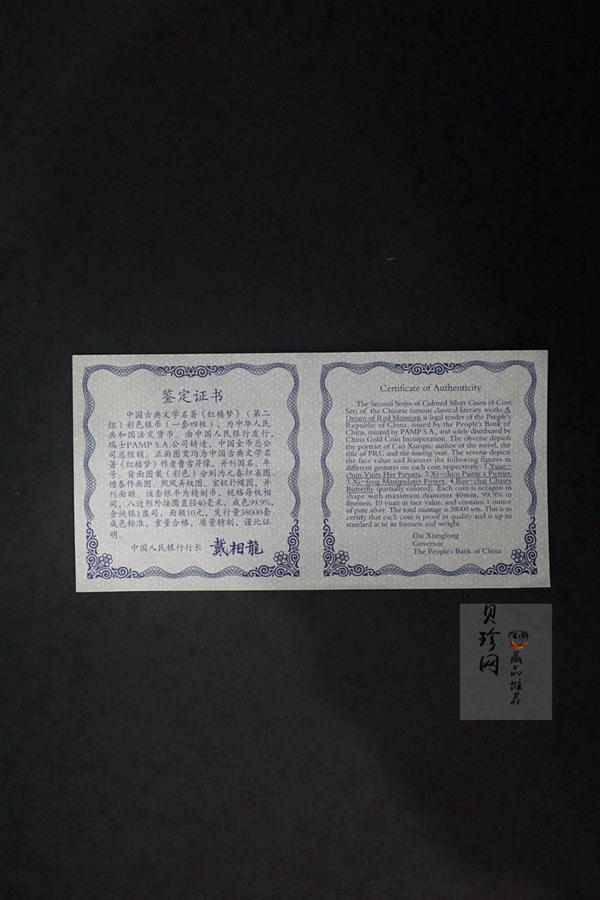 鉴定证书
中国古典文学名著《红楼梦》(第二
组)彩色银币(一套四枚),为中华人民
共和国法定货币。由中国人民银行发行,
瑞士PAMP S.A.公司铸造,中国金币总公
司总经销。正面图案均为中国古典文学名
著《红楼梦》作者曹雪芹像,并刊国名、年
号。背面图案(彩色)分别为元春归省图、
惜春作画图、熙凤弄权图、宝钗扑蝶图,并
刊面额。该套银币为精制币,规格每枚相
同,八边形外接圆直径40毫米,成色99.9%,
含纯银1盎司,面额10元,发行量38000套。
成色标准,重量合格,质量精制,谨此证
明。
中国人民银行行长 戴相龍
Certificate of Authenticity
The Second Series of Colored Silver Coins (4-Coin
Set) of the Chinese famous classical literary works A
Dream of Red Mansions is legal tender of the People's
Republic of China, issued by the People's Bank of
China, minted by PAMP S.A., and solely distributed by
China Gold Coin Incorporation. The obverse depicts
the portrait of Cao Xueqin, author of the novel, the
title of PRC and the issuing year. The reverse depicts
the face value and features the following figures in
different gestures on each coin respectively: 1.Yuan-
chun Visits Her Parents, 2.Xi-chun Paints a Picture,
3.Xi-feng Manipulates Power, 4.Bao-chai Chases
Butterfly (partially colored). Each coin is octagon in
shape with maximum diameter 40mm, 99.9% in
fineness, 10 yuan in face value, and contains 1 ounce
of pure silver. The total mintage is 38000 sets. This is to
certify that each coin is proof in quality and is up to
standard as to its fineness and weight.
Dai Xianglong
Governor
The People's Bank of China
贝珍网
藏品推荐